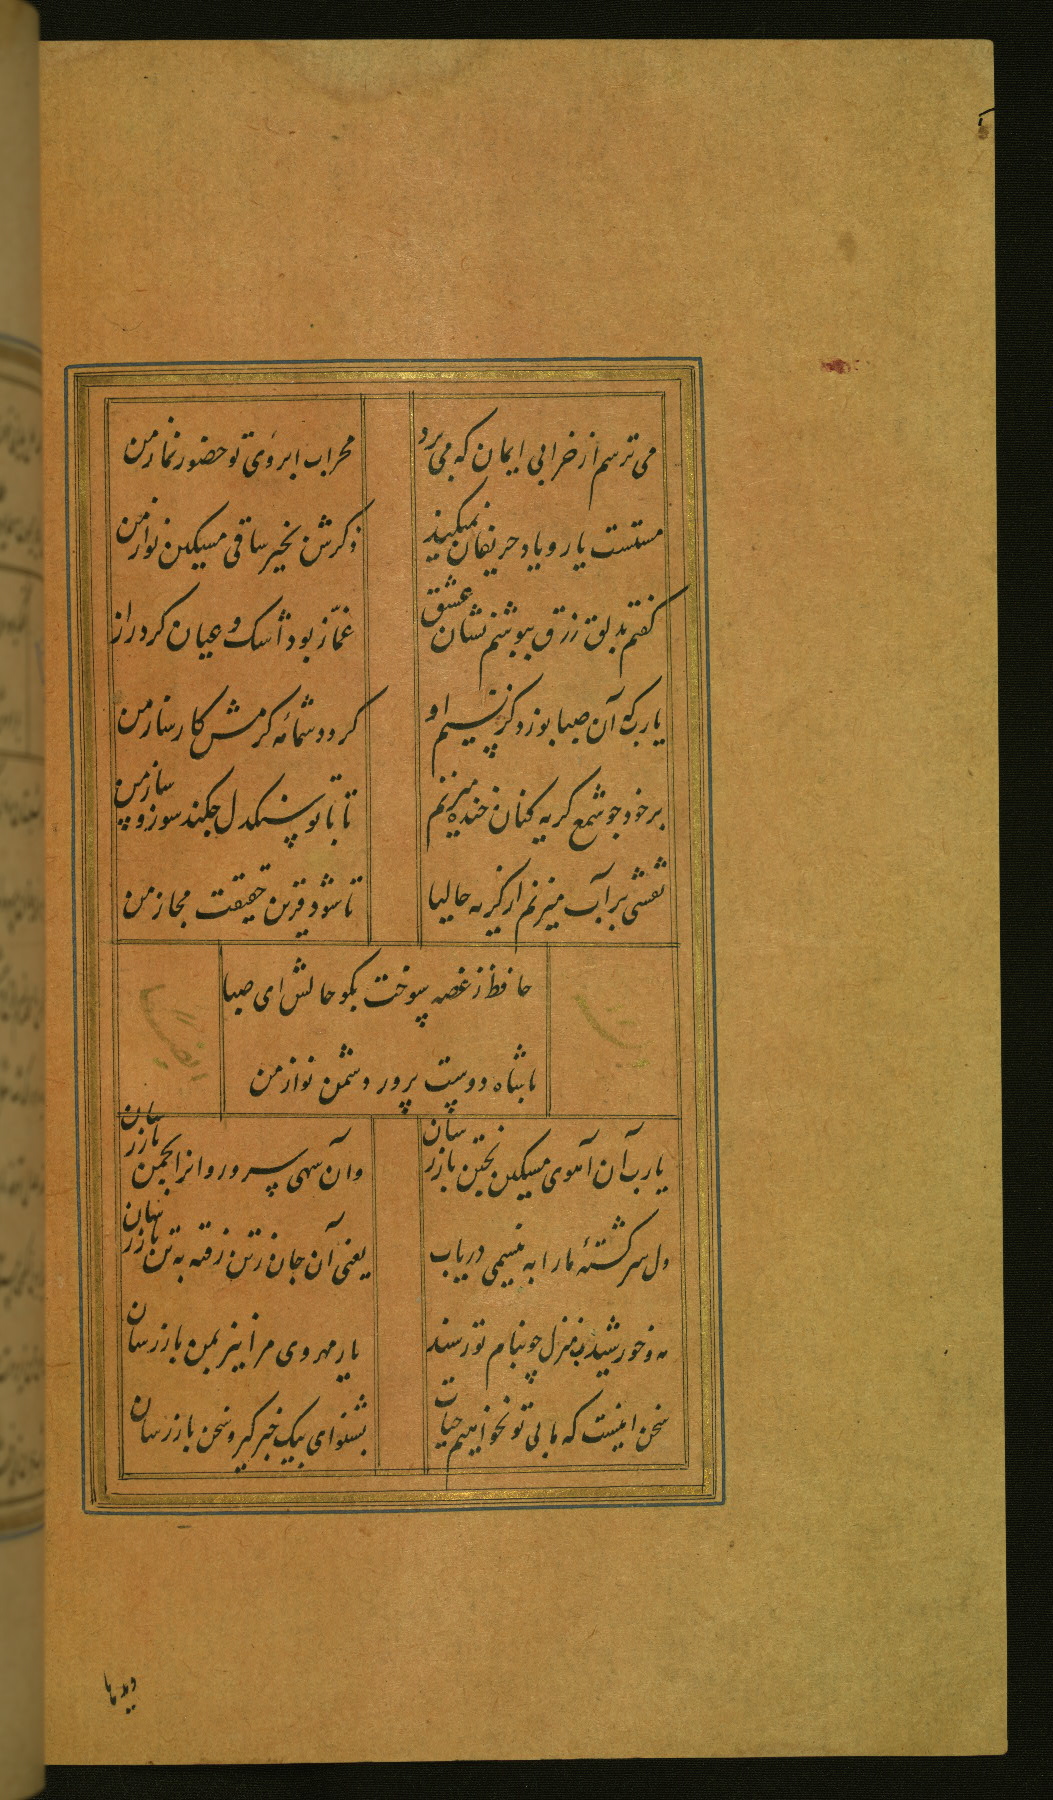 می ترسم از خرابی ایمان که می برد
محراب ابروی تو حضور نماز من
مستست یار و یاد حریفان نمیکند
ذکرش بخیر ساقی مسکین نواز من
گفتم بدلق زرق بپوشم نشان عشق
غمّاز بود اشک و عیان کرد راز من
یارب کی آن صبا بوزد کز نسیم او
کردد شمامه کرمش کارساز من
بر خود چو شمع گریه کنان خنده میزنم
تا با تو سنگدل چکند سوز و ساز من
نقشی بر آب میزنم از گریه حالیا
تا شود قرین حقیقت مجاز من
حافظ ز غصه سوخت بگو حالش ای صبا
با شاه دوست پرور دشمن نواز من
ایضاً
یارب آن آهوی مسکین بختن باز رسان
وآن سهی سرو روانرا بچمن باز رسان
دل سرگشتهٔ ما را به نسیمی دریاب
یعنی آن جان ز تن رفته به تن باز رسان
مه و خورشید بمنزل چو بنام تو رسند
یار مهروی مرا نیز بمن باز رسان
سخن اینست که ما بی تو نخواهیم حیات
بشنو ای پیک خبر گیر و سخن باز رسان
دیدها